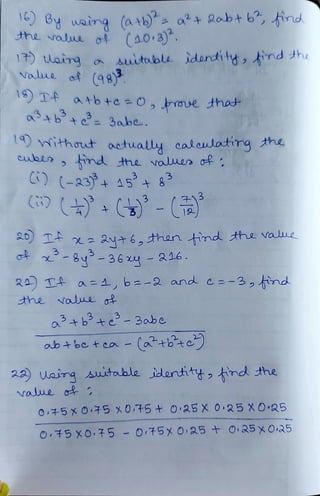 16) By using (a+b)² = a² + 2ab + b², find
the value of (10.3)².
17) Using a suitable identity, find the
value of (98)³.
18) If a+b+c = 0, prove that
a³+b³+c³ = 3abc.
19) Without actually calculating the
cubes, find the values of :
(i) (-23)³ + 15³ + 8³
(ii) (1/4)³ + (1/3)³ - (7/12)³
20) If x = 2y+6, then find the value
of x³ - 8y³ - 36xy - 216.
21) If a=1, b=-2 and c=-3, find
the value of
a³+b³+c³-3abc
ab+bc+ca - (a²+b²+c²)
22) Using suitable identity, find the
value of :
0.75 X 0.75 X 0.75 + 0.25 X 0.25 X 0.25
0.75 X 0.75 - 0.75 X 0.25 + 0.25 X 0.25